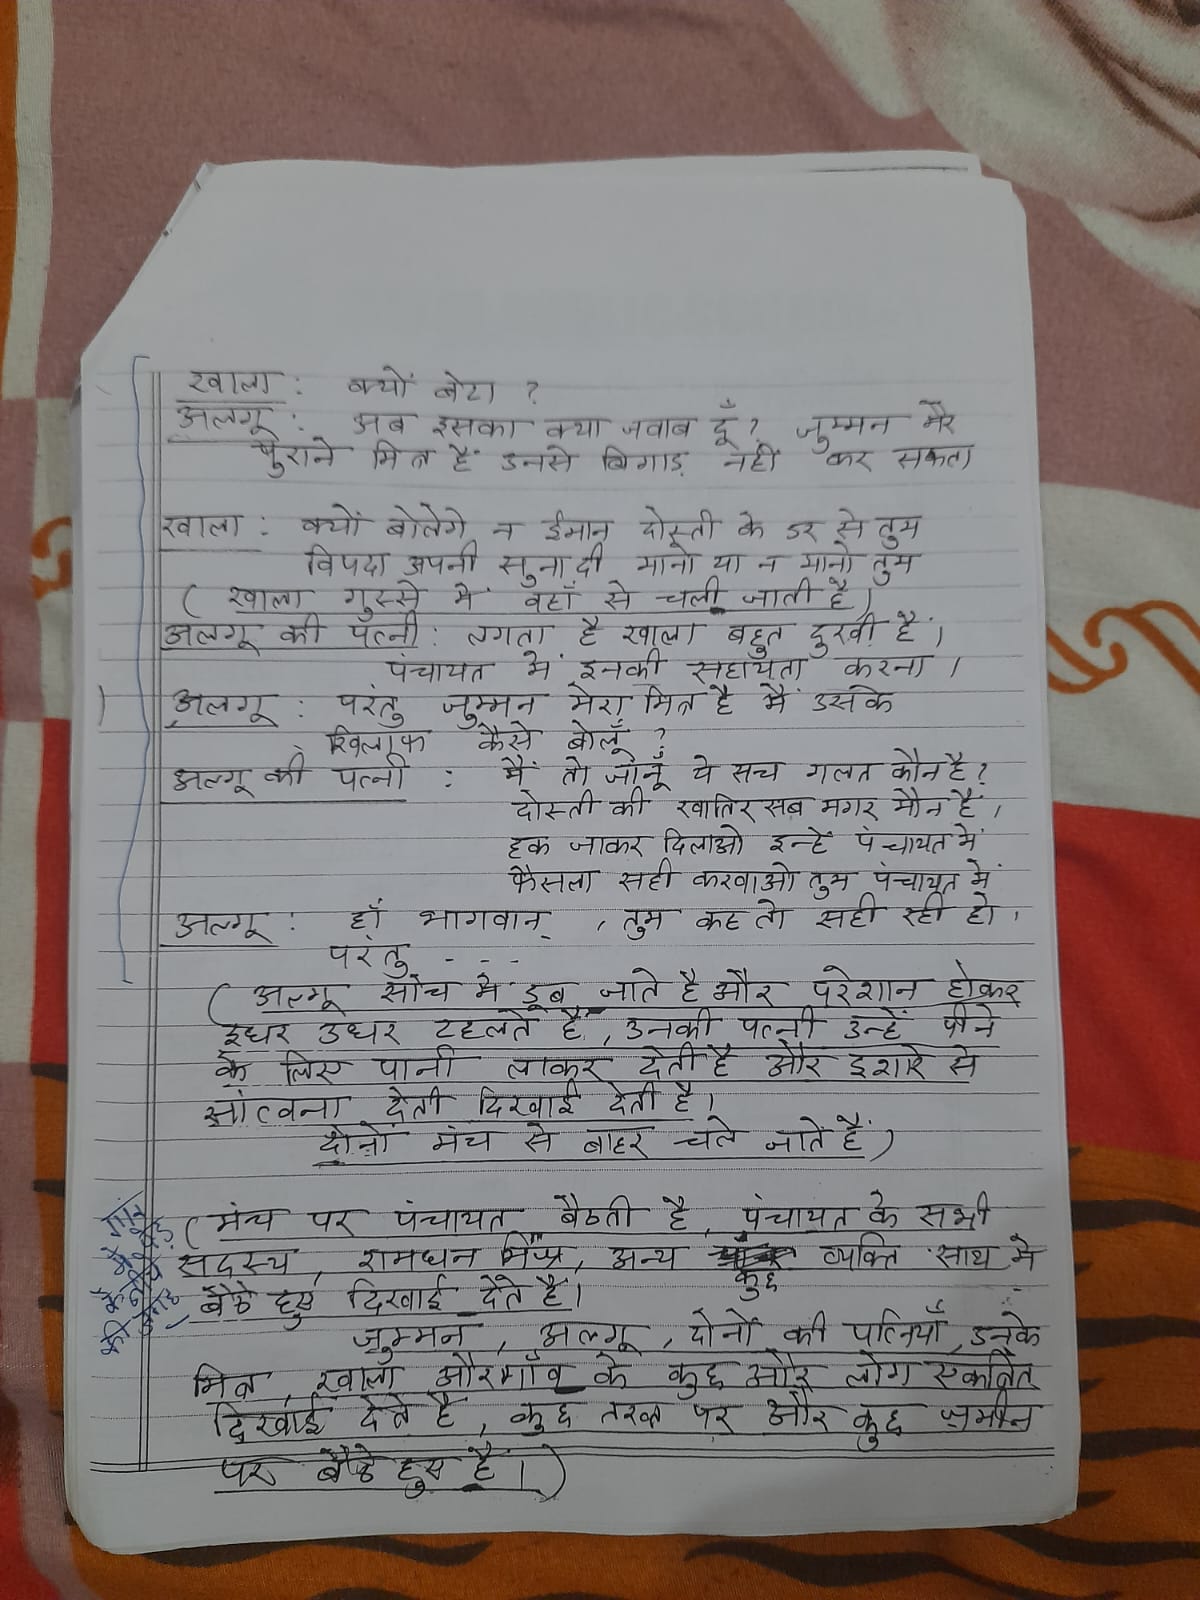 खाला : क्यों बेटा ?
अलगू : अब इसका क्या जवाब दूँ ? जुम्मन मेरे
पुराने मित्र हैं उनसे बिगाड़ नहीं कर सकता
खाला : क्यों बोलेगे न ईमान दोस्ती के डर से तुम
विपदा अपनी सुना दी मानो या न मानो तुम
( खाला गुस्से में वहाँ से चली जाती है )
अलगू की पत्नी : लगता है खाला बहुत दुखी है ।
पंचायत में इनकी सहायता करना ।
अलगू : परंतु जुम्मन मेरा मित्र है मैं उसके
खिलाफ कैसे बोलूँ ?
अल्गू की पत्नी : मैं तो जानूँ ये सच गलत कौन है ?
दोस्ती की खातिर सब मगर मौन हैं ।
हक जाकर दिलाओ इन्हें पंचायत में
फैसला सही करवाओ तुम पंचायत में
अल्गू : हाँ भागवान , तुम कह तो सही रही हो ।
परंतु - - -
( अल्गू सोच मे डूब जाते है और परेशान होकर
इधर उधर टहलते हैं , उनकी पत्नी उन्हें पीने
के लिए पानी लाकर देती है और इशारे से
सांत्वना देती दिखाई देती है ।
दोनों मंच से बाहर चले जाते हैं )
( मंच पर पंचायत बैठती है , पंचायत के सभी
सदस्य , रामधन मिश्र , अन्य कुछ व्यक्ति साथ मे
बैठे हुए दिखाई देते है ।
जुम्मन , अल्गू , दोनों की पत्नियाँ , उनके
मित्र , खाला और गाँव के कुछ और लोग एकत्रित
दिखाई देते है , कुछ तख्त पर और कुछ ज़मीन
पर बैठे हुए है । )